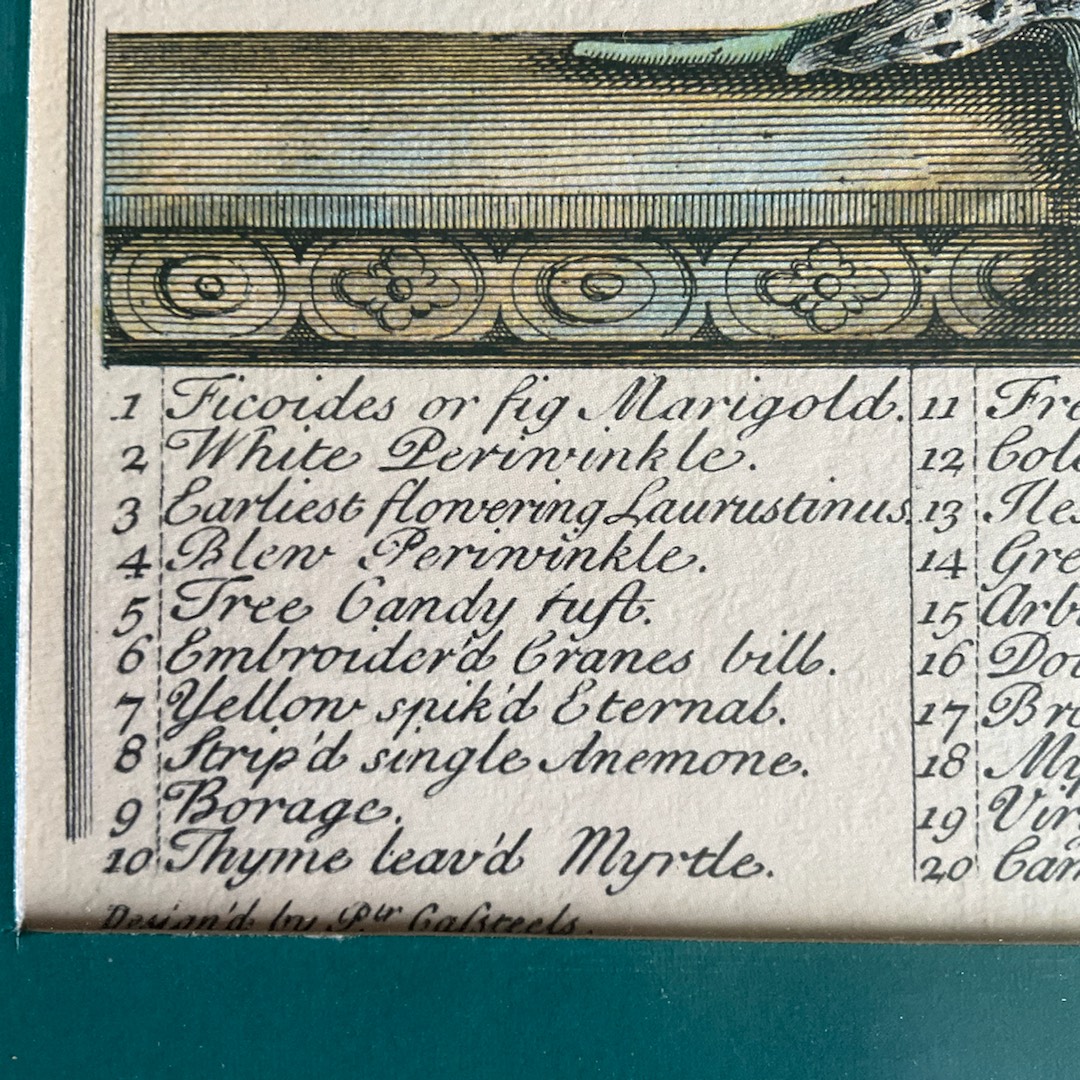 1 Ficoides or fig Marigold.
2 White Periwinkle.
3 Earliest flowering Laurustinus.
4 Blew Periwinkle.
5 Tree Candy tuft.
6 Embroider'd Cranes bill.
7 Yellow spik'd Eternal.
8 Strip'd single Anemone.
9 Borage.
10 Thyme leav'd Myrtle.
Design'd by P.tr Casteels.
11 Fr
12 Col
13 Iles
14 Gre
15 Arb
16 Dou
17 Br
18 My
19 Virg
20 Can